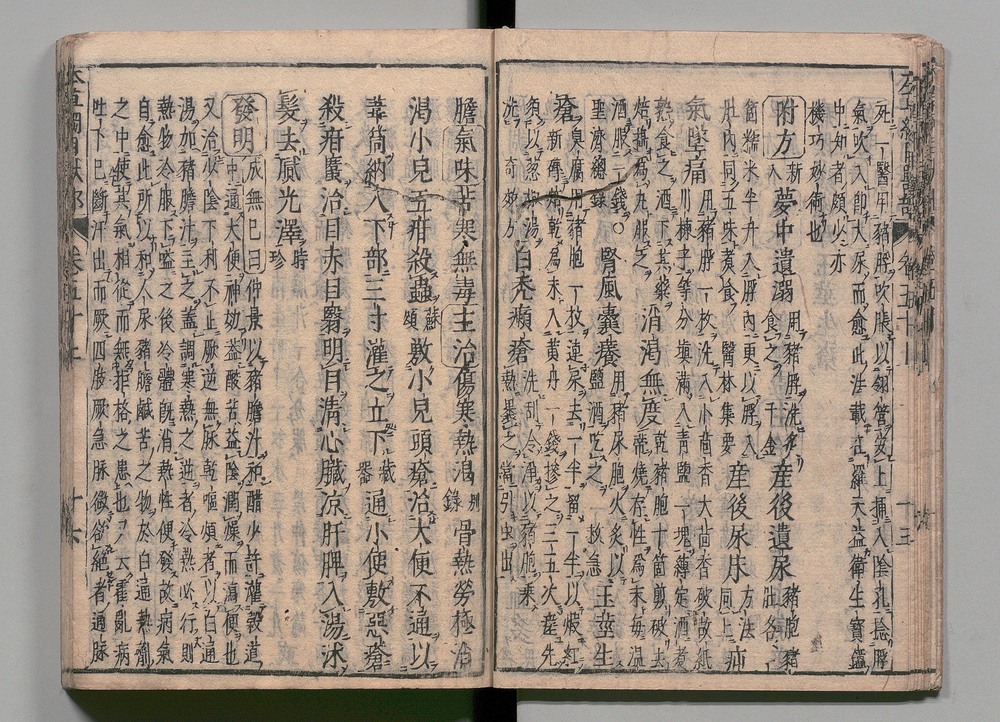 死一醫用豬脬吹脹以翎管安上插入陰孔捻脬
氣吹入即大尿而愈此法載在羅天益衛生寶鑑
中知者頗少亦
機巧妙術也
附方新入夢中遺溺用豬脬洗炙食之千金産後遺尿豬胞豬肚各
箇糯米半升入脬內更以脬入
肚內同五味煮食醫林集要産後尿床方法同上疝
氣墜痛用豬脬一枚洗入小茴香大茴香破故紙
川楝子等分填滿入青鹽一塊縛定酒煮
熟食之酒下其藥
焙搗為丸服之消渴無度乾豬胞十箇剪破去
蒂燒存性為末每溫
酒服一錢○
聖濟總錄腎風囊癢用豬尿胞火炙以
鹽酒吃之救急玉莖生
瘡臭腐用豬胞一枚連尿去一半留一半以煅紅
新磚焙乾為末入黃丹一錢摻之三五次瘥先
須以葱椒湯
洗奇效方白禿癩瘡洗刮令淨以豬胞乘
熱裹之當引虫出
膽氣味苦寒無毒主治傷寒熱渴別錄骨熱勞極治
渴小兒五疳殺蟲蘇頌敷小兒頭瘡治大便不通以
葦筒納入下部三寸灌之立下藏器通小便敷惡瘡
殺疳䘌治目赤目翳明目清心臟涼肝脾入湯沐
髮去膩光澤時珍
發明成無已曰仲景以豬膽汁和醋少許灌穀道
中通大便神妙蓋酸苦益陰潤燥而瀉便也
又治少陰下利不止厥逆無脉乾嘔煩者以白通
湯加豬膽汁主之蓋調寒熱之逆者冷熱必行則
熱物冷服下嗌之後冷體既消熱性便發故病氣
自愈此所以和人尿豬膽鹹苦之物於白通熱劑
之中使其氣相從而無拒格之患也又云霍亂病
吐下已斷汗出而厥四肢厥急脉微欲絕者通脉
本草綱目獸部 卷五十上 十六